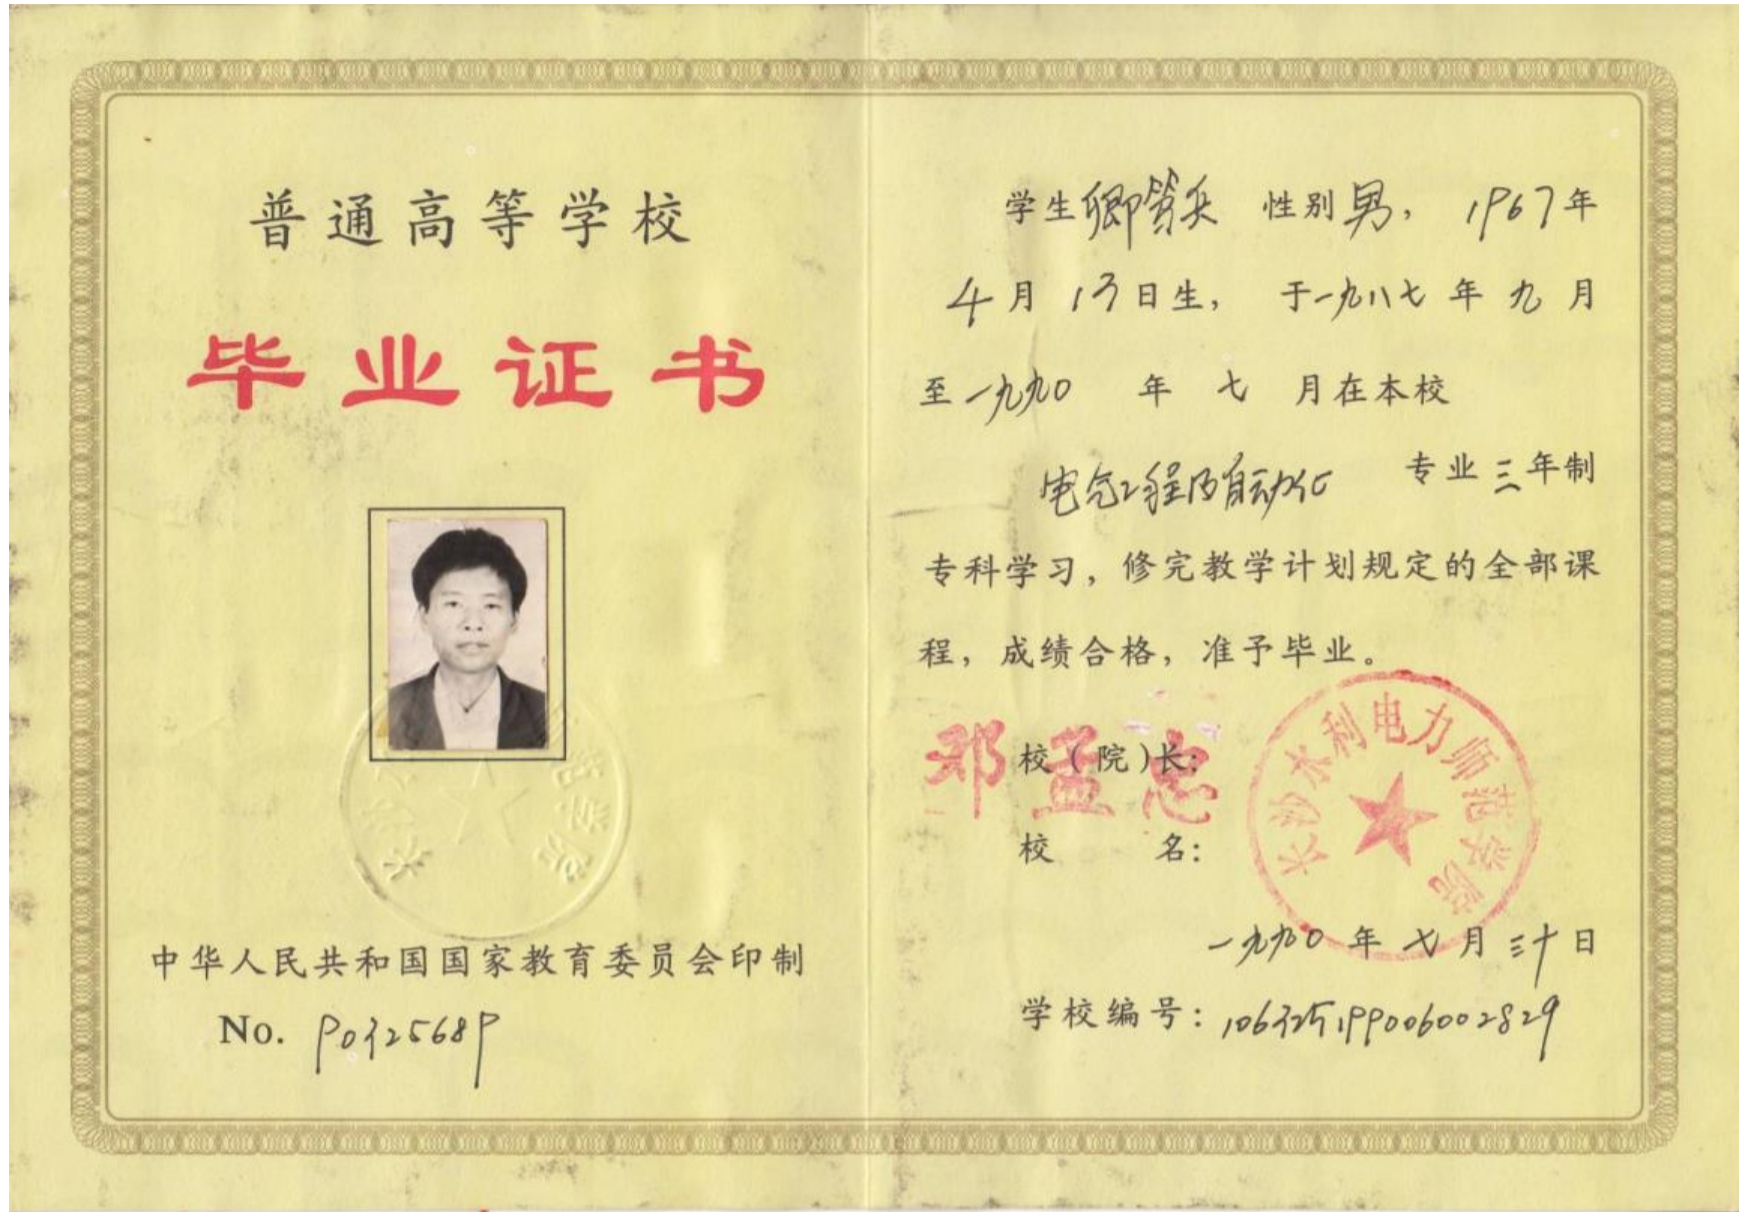 普通高等学校
毕业证书
中华人民共和国国家教育委员会印制
No. 90325689
学生卿 性别男, 1967年
4月13日生, 于一九八七年九月
至一九九〇年七月在本校
电气工程及自动化 专业三年制
专科学习, 修完教学计划规定的全部课
程, 成绩合格, 准予毕业。
校(院)长: 邓孟志
校名:
长沙水利电力师范学院
一九九〇年七月三十日
学校编号: